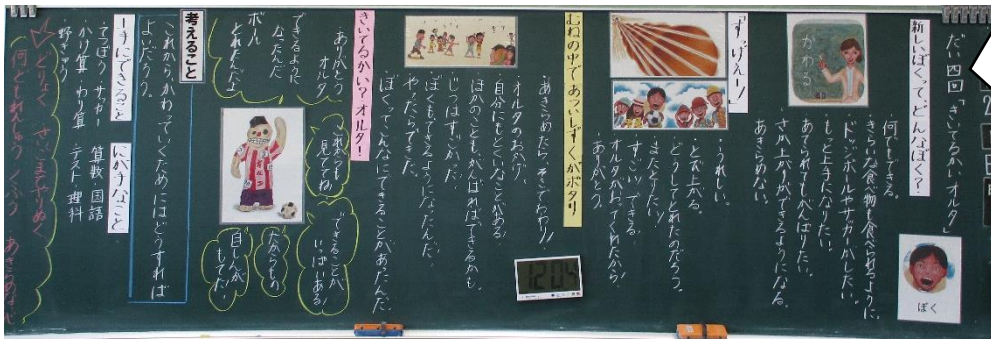 だい四回「きいてるかい オルタ」
ぼく
新しいぼくって、どんなぼく?
何でもできる。
きらいな食べ物も食べられるように。
ドッジボールやサッカーがしたい。
もっと上手になりたい。
あてられてもがんばりたい。
さか上がりができるようになる。
あきらめない。
かわる
「すっげえー!」
・うれしい。
・とび上がる。
・どうしてとれたのだろう。
・またとりたい!
・すごい!できる。
・オルタがおってくれたから!
・ありがとう。
むねの中であついしずくがポタリ
・あきらめたらそこでおわり!
・オルタのおかげ。
・自分にもとくいなことがある。
・ほかのことも、がんばればできるかも。
・じつはすごいかだ。
・ぼくもできるようになったんだ。
・やったらできた。
・ぼくってこんなにできることがあったんだ。
きいてるかい?オルタ!
ありがとう
オルタ
できるように
なったんだ
ボールとれたんだよ
これからも
見ててね
できることが
いっぱいある
だからもの
自しんが
もてた!
考えること
これから、かわっていくためにはどうすれば
よいだろう。
手にできること
・てつぼう サッカー
・かけ算 わり算
・野きゅう
にが手なこと
算数・国語
テスト 理科
どりょく さいごまでやりぬく
何ども れんしゅう くふう あきらめない